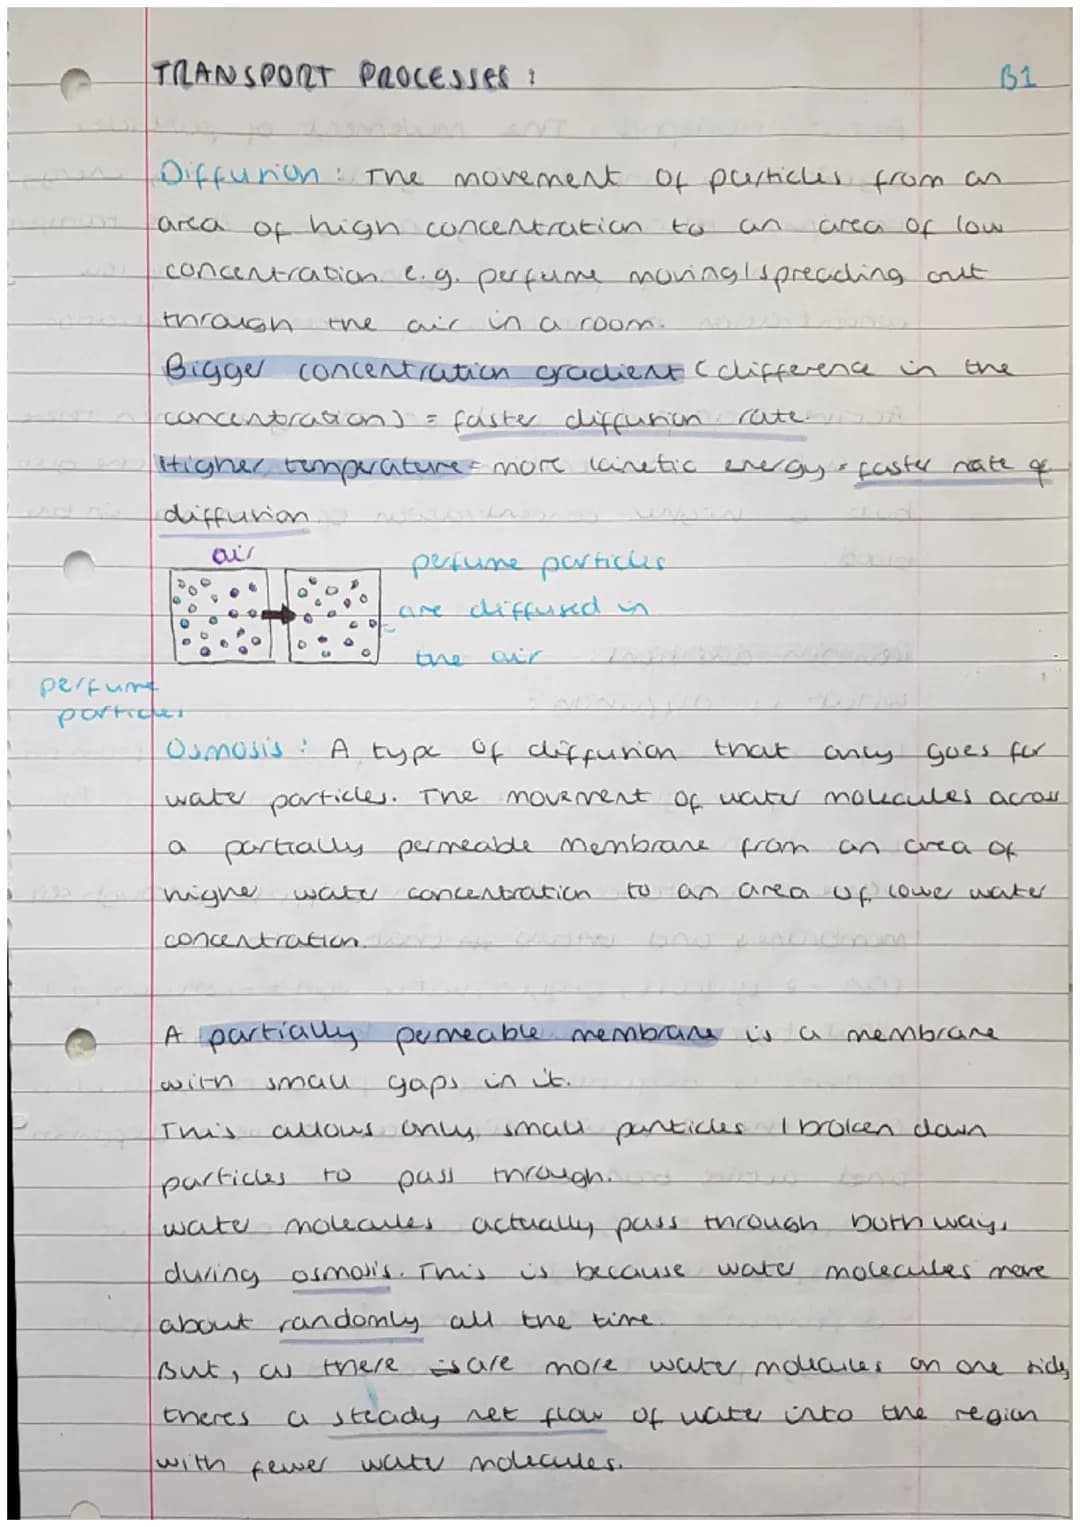 TRANSPORT PROCESSES :
B1
Diffusion : The movement of particles from an
area of high concentration to an area of low
concentration. e.g. perfume moving/spreading out
through the air in a room.
Bigger concentration gradient (difference in the
concentration) = faster diffusion rate.
Higher temperature = more kinetic energy = faster rate of
diffusion.
air
perfume particles
are diffused in
the air
perfume
particles
Osmosis : A type of diffusion that only goes for
water particles. The movement of water molecules across
a partially permeable membrane from an area of
higher water concentration to an area of lower water
concentration.
A partially permeable membrane is a membrane
with small gaps in it.
This allows only small particles / broken down
particles to pass through.
water molecules actually pass through both ways
during osmosis. This is because water molecules move
about randomly all the time.
But, as there is are more water molecules on one side,
theres a steady net flow of water into the region
with fewer water molecules.